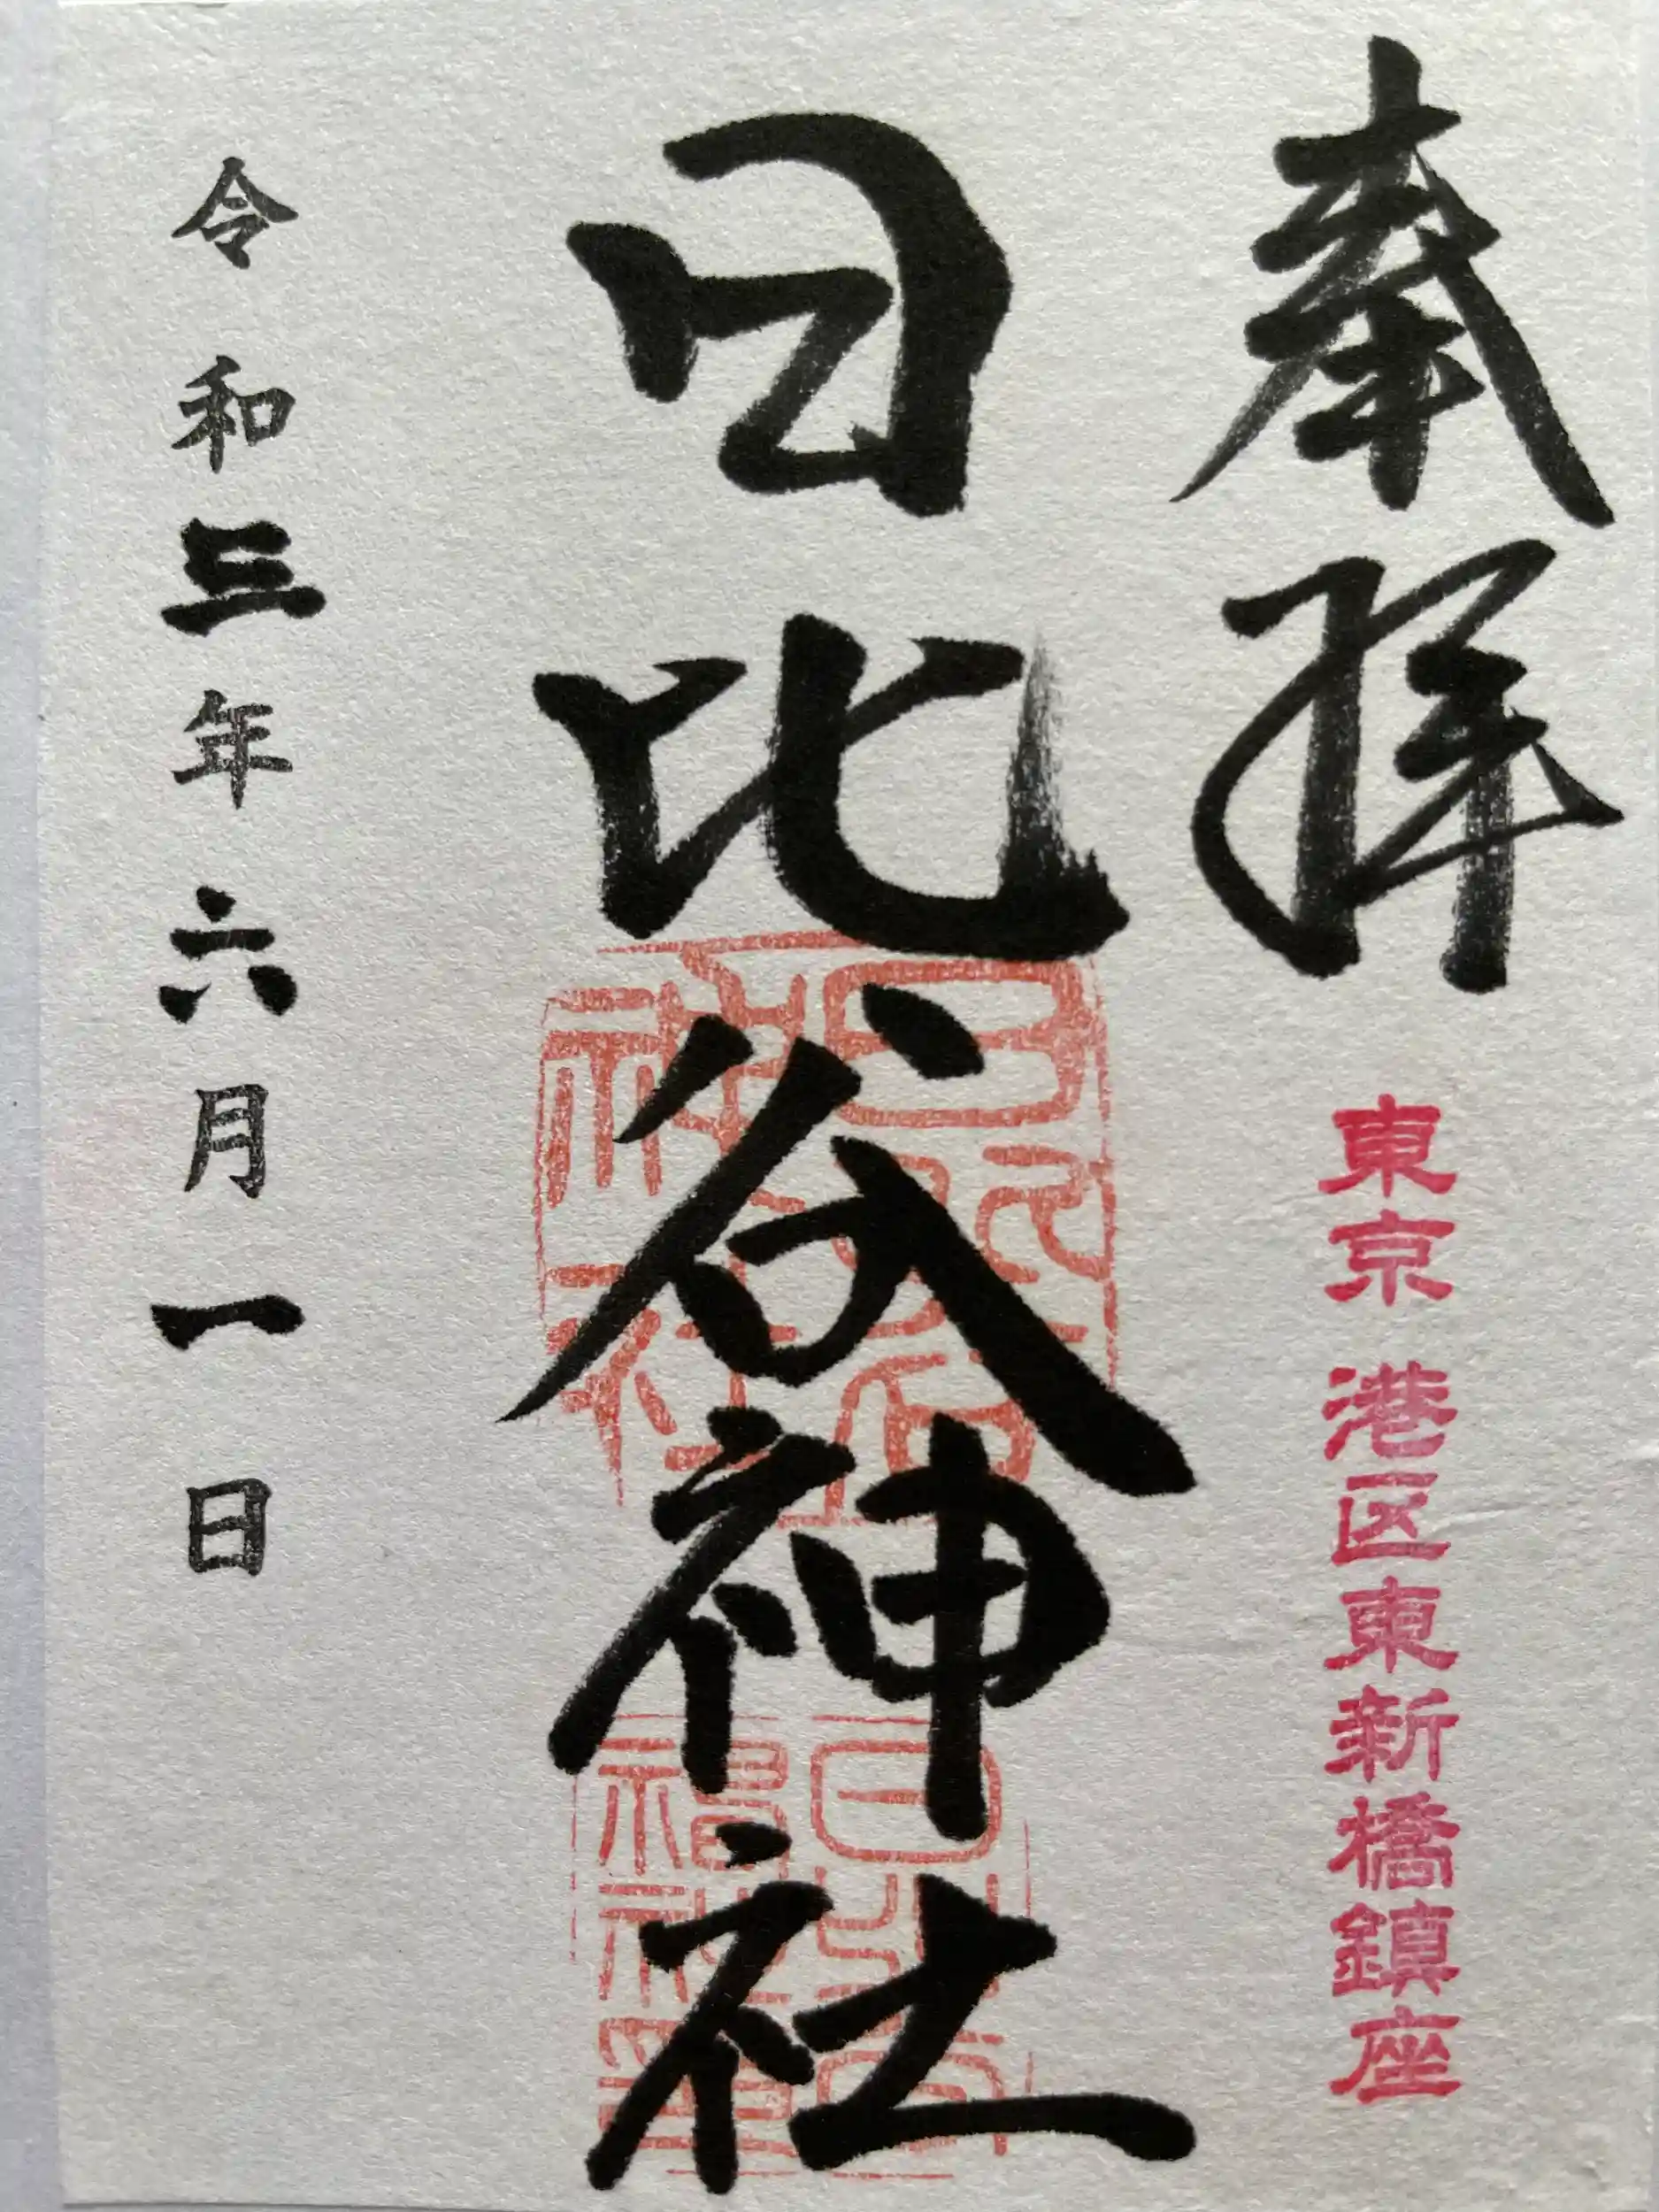 奉拝
東京 港区東新橋鎮座
日比谷神社
日比谷
神社
令和三年六月一日